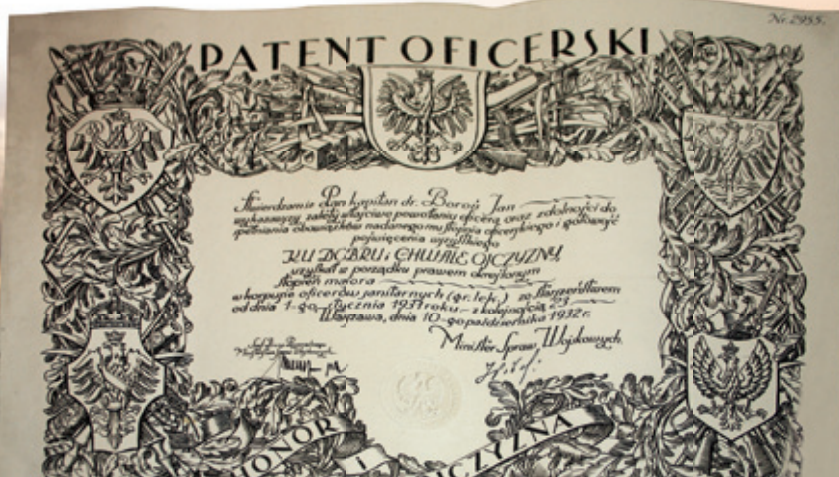 Nr. 2955.
PATENT OFICERSKI
Stwierdzam iż Pan kapitan dr. Boroń Jan
wykazawszy zalety właściwe powołaniu oficera oraz zdolności do
spełniania obowiązków nadanego mu stopnia oficerskiego i gotowość
poświęcenia wszystkiego
KU DOBRU i CHWALE OJCZYZNY
uzyskał w porządku prawem określonym
stopień majora
w korpusie oficerów sanitarnych (gr. lek.) ze starszeństwem
od dnia 1-go stycznia 1931 roku - z kolejnością 23
Warszawa, dnia 10-go października 1932 r.
Minister Spraw Wojskowych
HONOR I OJCZYZNA